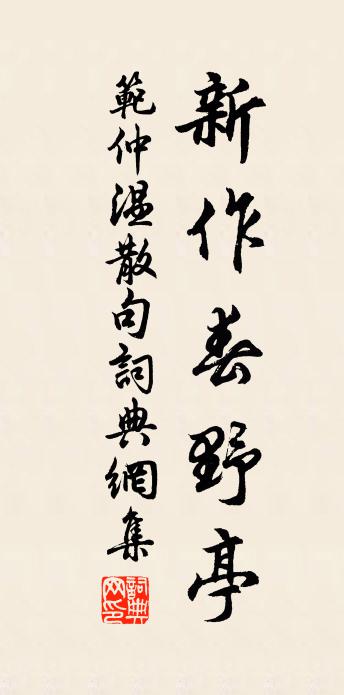 新作春野亭
範仲温散句詞典網集
詞典網印